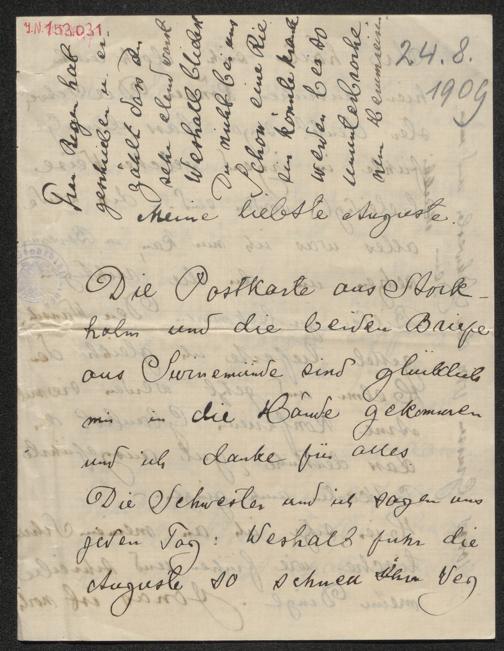 J.N. 153.031
24. 8.
1909
Frau Beger hat
geschrieben u er
zählt dass du
sehr elend warst
Weshalb bliebst
Du nicht bei uns
Schon eine Rie
sin könnte krank
werden bei so
ununterbroche
nem
Meine liebste Auguste.
Die Postkarte aus Stock-
holm und die beiden Briefe
aus Swinemünde sind glücklich
mir in die Hände gekommen
und ich danke für alles
Die Schwester und ich sagen uns
jeden Tag: Weshalb fuhr die
Auguste so schnell weg